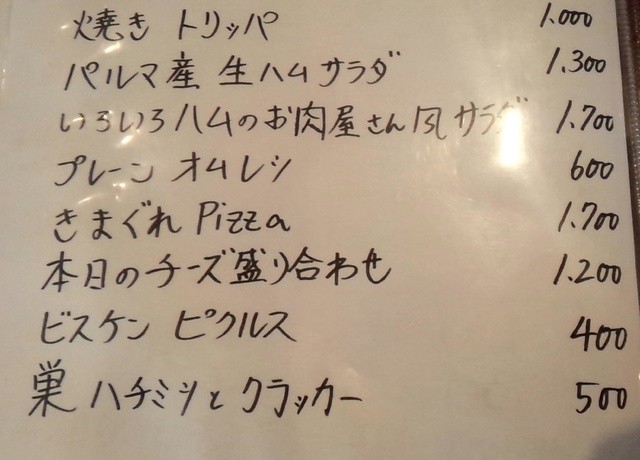 焼き トリッパ 1.000
パルマ産 生ハムサラダ 1.300
いろいろハムのお肉屋さん風サラダ 1.700
プレーン オムレツ 600
きまぐれ Pizza 1.700
本日のチーズ盛り合わせ 1.200
ビスケン ピクルス 400
巣ハチミツと クラッカー 500